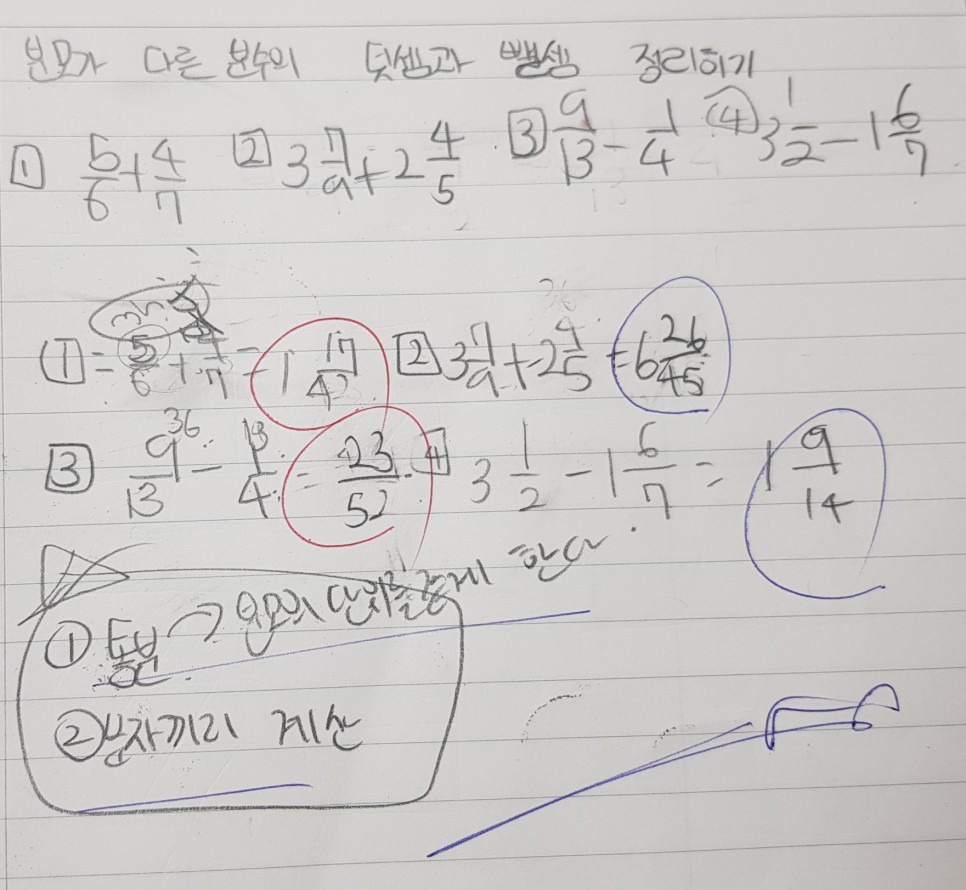 분모가 다른 분수의 덧셈과 뺄셈 정리하기
1 5/6+4/7 2 3 7/9+2 4/5 3 9/13-1/4 4 3 1/2-1 6/7
① = 5/6+4/7=1 17/42 2 3 7/9+2 4/5=6 26/45
3 9/13 36 - 1/4 13 = 23/52 4 3 1/2-1 6/7=1 9/14
① 통분 → 분모의 단위를 같게 한다
② 분자끼리 계산